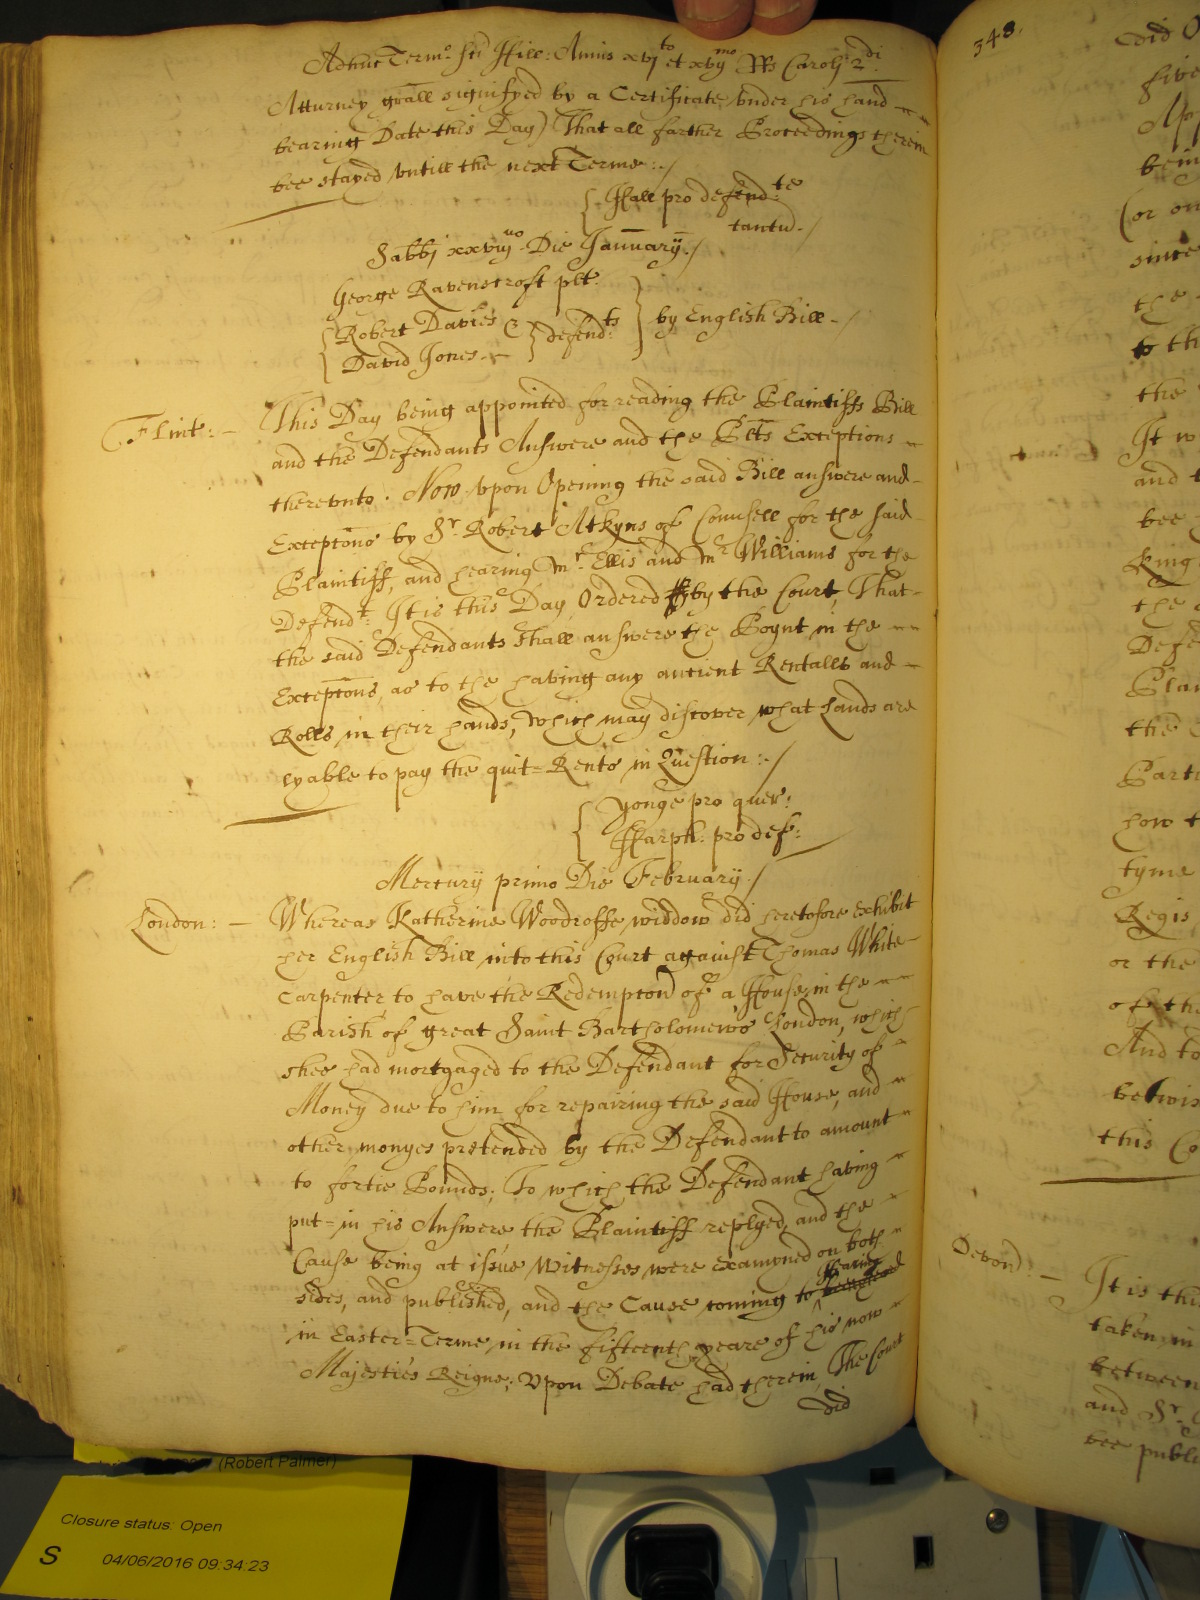 Adhuc Termo Sci Hill: Annis xvjto et xvijmo Rs Caroli 2di
Atturney grall signifyed by a Certificate vnder his hand
bearing Date this Day) That all farther Proceedings therein
bee stayed vntill the next Terme:./
{ Hall pro defendte
tantu./
Sabbi xxviijuo Die January./
George Ravenscroft plt.
{ Robert Davies & } defendts } by English Bill -/
David Jones
Flint: - This Day being appointed for reading the Plaintiffs Bill
and the Defendants Answere and the Plts Exceptions
therevnto. Now vpon Opening the said Bill answere and
Exceptons by Sr. Robert Atkyns of Counsell for the said
Plaintiff, and hearing Mr. Ellis and Mr Williams for the
Defendt: It is this Day Ordered by the Court, That
the said Defendants shall answere the Poynt in the
Exceptons, as to the having any antient Rentalls and
Rolls in their hands, which may discover what Lands are
lyable to pay the quit=Rents in Question :./
{ Yonge pro quer:
Harph: pro def:
Mercurij primo Die February./
London: - Whereas Katherine Woodroffe widdow did heretofore exhibit
her English Bill into this Court against Thomas White
Carpenter to have the Redempton of a House in the
Parish of great Saint Bartholomews London, which
shee had mortgaged to the Defendant for Security of
Money due to him for repairing the said House, and
other monyes pretended by the Defendant to amount
to fortie Pounds; To which the Defendant having
put=in his Answere the Plaintiff replyed, and the
Cause being at issue witnesses were examyned on both
sides, and published, and the Cause coming to Hearing
in Easter=Terme in the fifteenth yeare of his now
Majesties Reigne; Vpon Debate had therein, The Court
did
348.
did
five
bein
(or on
since
the
to th
the
It w
and t
bee
King
the
Defe
Plai
the
Parti
how t
tyme
Regis
or the
of the
And to
betwix
this Co
Devond: - It is this
taken in
between
and Sr.
bee publi
(Robert Palmer)
Closure status: Open
S 04/06/2016 09:34:23